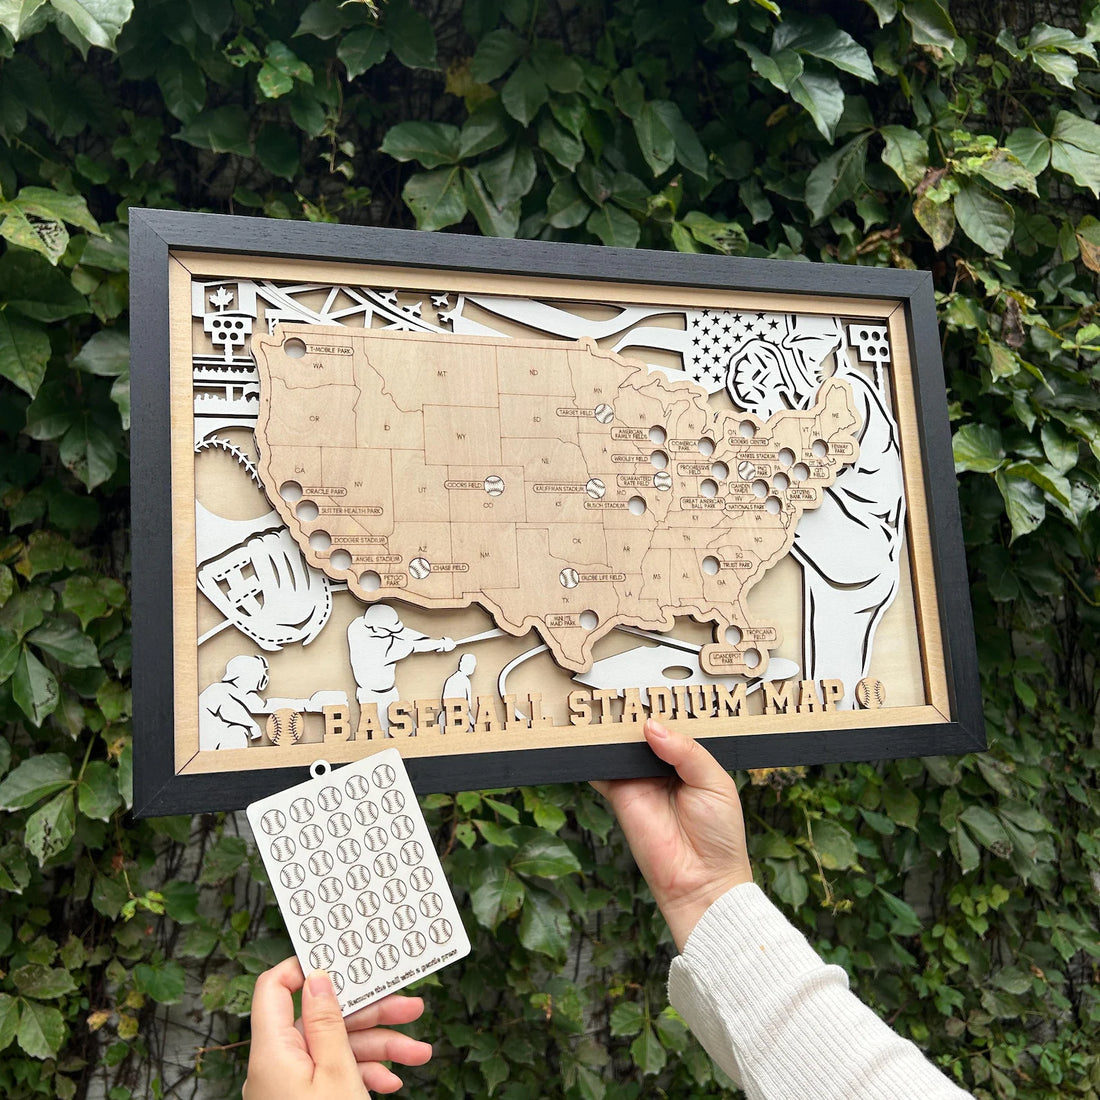 T-MOBILE PARK
WA
MT
ND
MN
OR
ID
SD
WI
MI
ON
ME
VT
NH
WY
TARGET FIELD
AMERICAN
FAMILY FIELDS
COMERICA
PARK
ROGERS CENTRE
NY
FENWAY
PARK
IA
WRIGLEY FIELD
YANKEE STADIUM
MA
CITI
FIELD
CA
NV
UT
COORS FIELD
CO
NE
KAUFFMAN STADIUM
KS
MO
GUARANTEED
RATE FIELD
PROGRESSIVE
FIELD
PNC
PARK
PA
ORACLE PARK
SUTTER HEALTH PARK
BUSCH STADIUM
GREAT AMERICAN
BALL PARK
CAMDEN
YARDS
MD
CITIZENS
BANK PARK
WV
NATIONALS PARK
VA
DODGER STADIUM
ANGEL STADIUM
PETCO
PARK
AZ
CHASE FIELD
NM
OK
AR
TN
NC
SC
TRUIST PARK
GLOBE LIFE FIELD
TX
MS
AL
GA
LA
MINUTE
MAID PARK
FL
TROPICANA
FIELD
LOANDEPOT
PARK
BASEBALL STADIUM MAP
Remove the ball with a gentle press